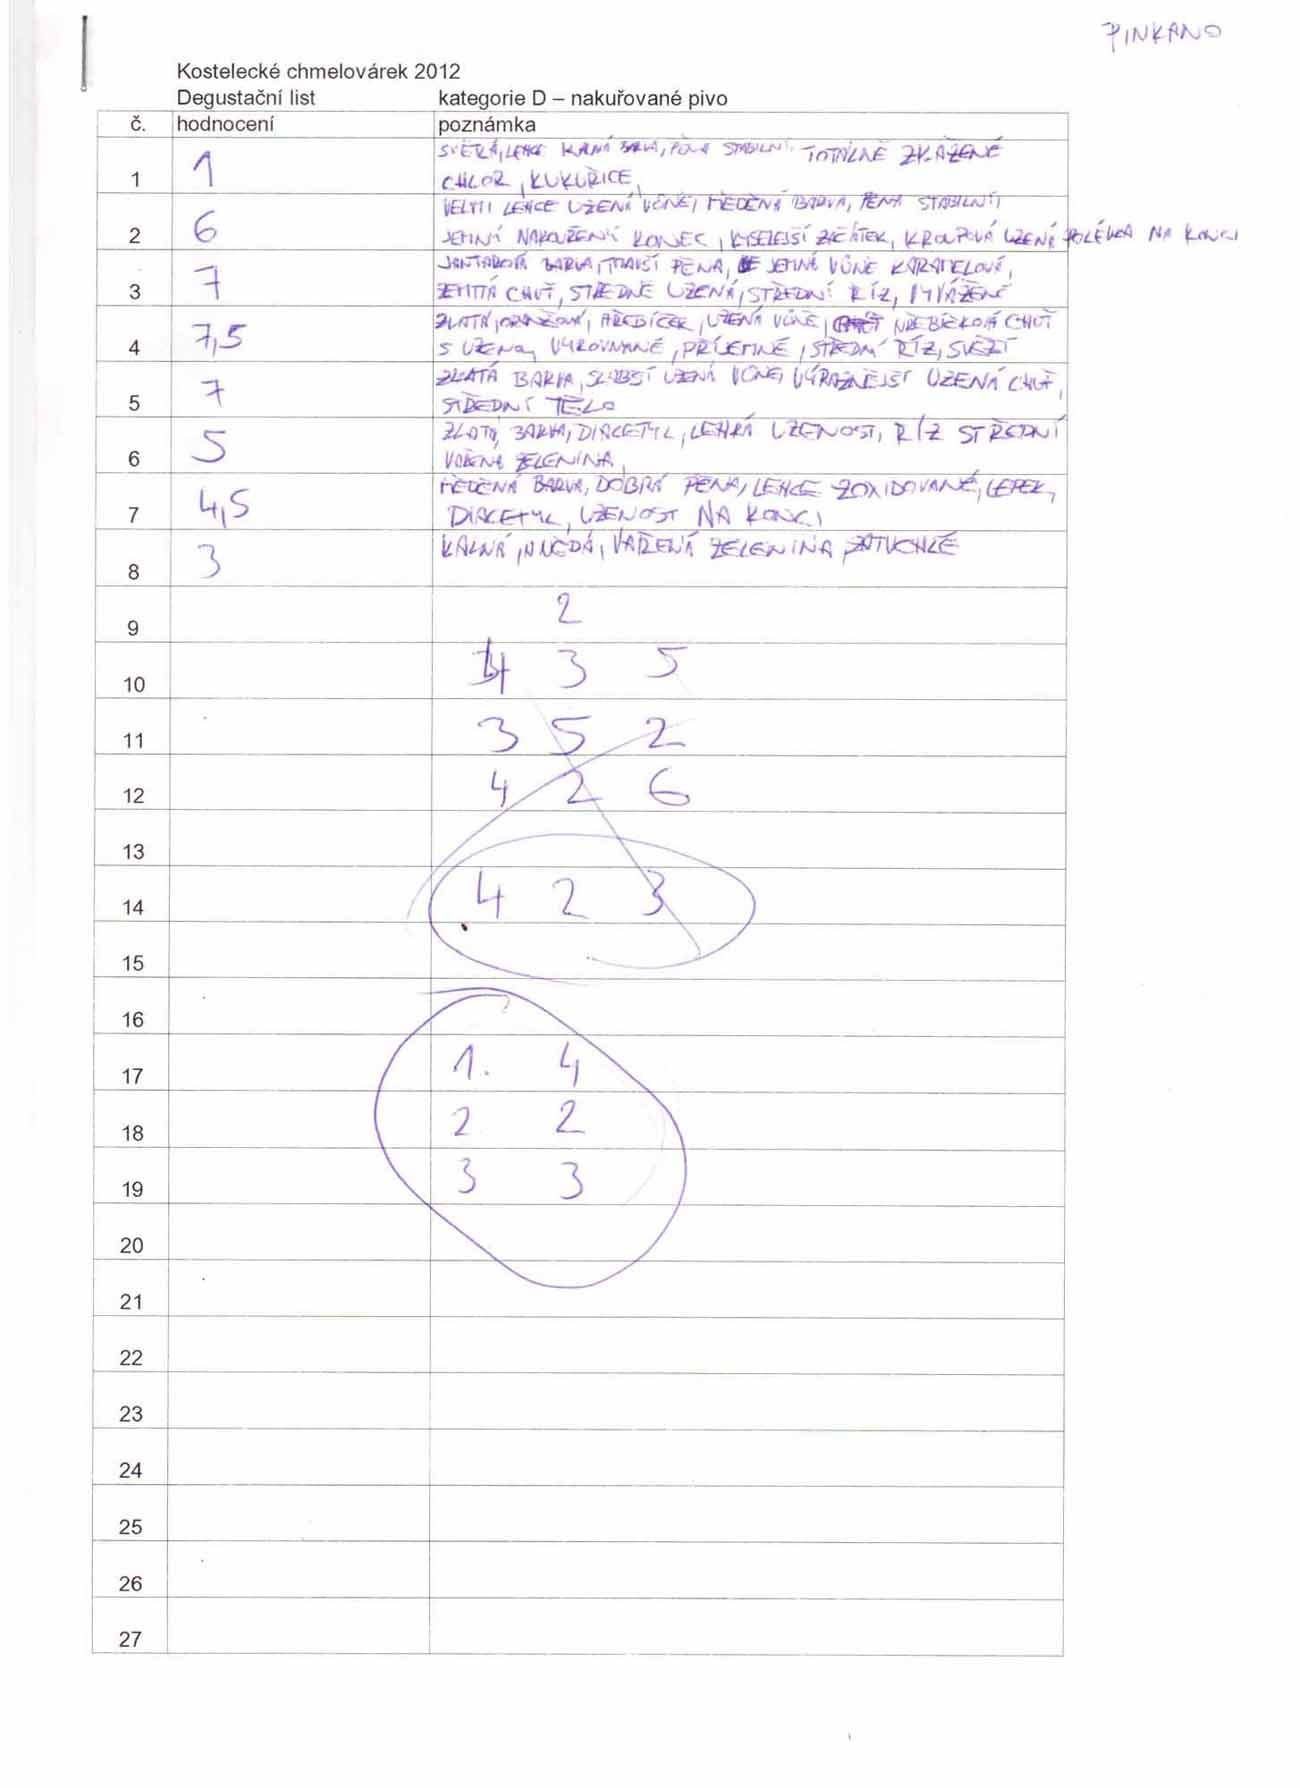 PINKANO
Kostelecké chmelovárek 2012
Degustační list kategorie D – nakuřované pivo
č. hodnocení poznámka
SVĚTLÁ, LEHCE KALNÁ BARVA, PĚNA STABILNÍ. TOTÁLNĚ ZKAŽENÉ
1 1 CHLOR, KUKUŘICE,
VELMI LEHCE UZENÁ VŮNĚ, MĚDĚNÁ BARVA, PĚNA STABILNÍ,
2 6 JEMNÝ NAKOUŘENÝ KONEC, KYSELEJŠÍ ZAČÁTEK, KROUPOVÁ UZENÁ POLÉVKA NA KONCI
JANTAROVÁ BARVA, PĚNA, JEMNÁ VŮNĚ KARAMELOVÁ,
3 7 ZEMITÁ CHUŤ, STŘEDNĚ UZENÁ, STŘEDNÍ ŘÍZ, VYVÁŽENÉ
ZLATÁ, ORANŽOVÁ, HŘEBÍČEK, UZENÁ VŮNĚ, HŘEBÍČKOVÁ CHUŤ
4 7,5 S UZENOU, VYROVNANÉ, PŘÍJEMNÉ, STŘEDNÍ ŘÍZ, SVĚŽÍ
ZLATÁ BARVA, SLABŠÍ UZENÁ VŮNĚ, VÝRAZNĚJŠÍ UZENÁ CHUŤ,
5 7 STŘEDNÍ TĚLO
ZLATÁ BARVA, DIACETYL, LEHKÁ UZENOST, ŘÍZ STŘEDNÍ
6 5 VAŘENÁ ZELENINA,
MĚDĚNÁ BARVA, DOBRÁ PĚNA, LEHCE ZOXIDOVANÉ, LEPEK,
7 4,5 DIACETYL, UZENOST NA KONCI
KALNÁ, HNĚDÁ, VAŘENÁ ZELENINA, ZATUCHLÉ
8 3
9 2
10 4 3 5
11 3 5 2
12 4 2 6
13
14 4 2 3
15
16
17 1. 4
18 2 2
19 3 3
20
21
22
23
24
25
26
27